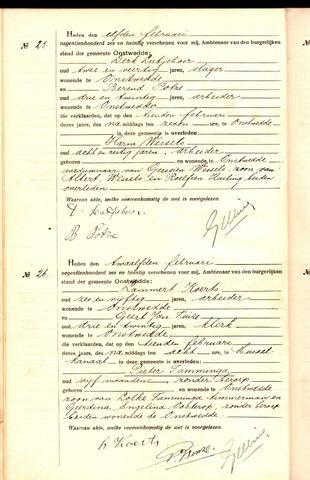 No 25.
Heden den elfden februari
negentienhonderd zes en twintig verschenen voor mij, Ambtenaar van den burgerlijken
stand der gemeente Onstwedde:
Derk
oud twee en veertig jaren, slager
wonende te Onstwedde
en Berend Potze
oud drie en twintig jaren, arbeider
wonende te Onstwedde
die verklaarden, dat op den tienden februari
dezes jaars, des na middags ten zeven ure, te Onstwedde
in deze gemeente is overleden:
Harm Wessels
oud acht en zestig jaren, arbeider
geboren en wonende te Onstwedde
weduwnaar van Wessels, zoon van
Albert Wessels en Roelfien beiden
overleden
Waarvan akte, welke overeenkomstig de wet is voorgelezen.
B Potze
No 26.
Heden den twaalfden februari
negentienhonderd zes en twintig verschenen voor mij, Ambtenaar van den burgerlijken
stand der gemeente Onstwedde:
Lammert Koerts
oud zes en vijftig jaren, arbeider
wonende te Onstwedde
en Geert
oud drie en twintig jaren, klerk
wonende te Onstwedde
die verklaarden, dat op den tienden februari
dezes jaars, des na middags ten acht ure, te Mussel-
kanaal in deze gemeente is overleden:
Pieter Tamminga
oud vijf maanden, zonder beroep
geboren en wonende te Onstwedde
zoon van Tamminga timmerman en
Geerdina Angelina zonder beroep
beiden wonende te Onstwedde
Waarvan akte, welke overeenkomstig de wet is voorgelezen.
L Koerts